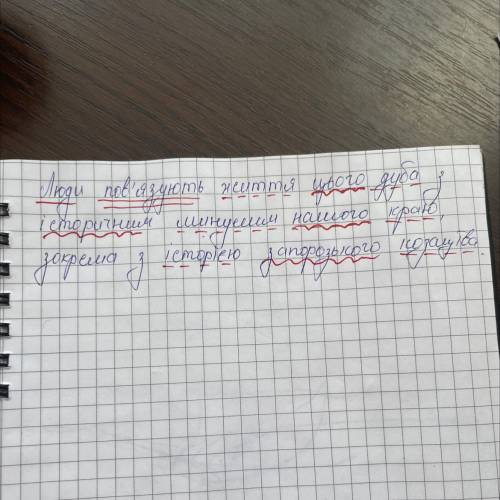 Люди пов'язують життя цього дуба з
історичним минулим нашого краю,
зокрема з історією запорозького козацтва.